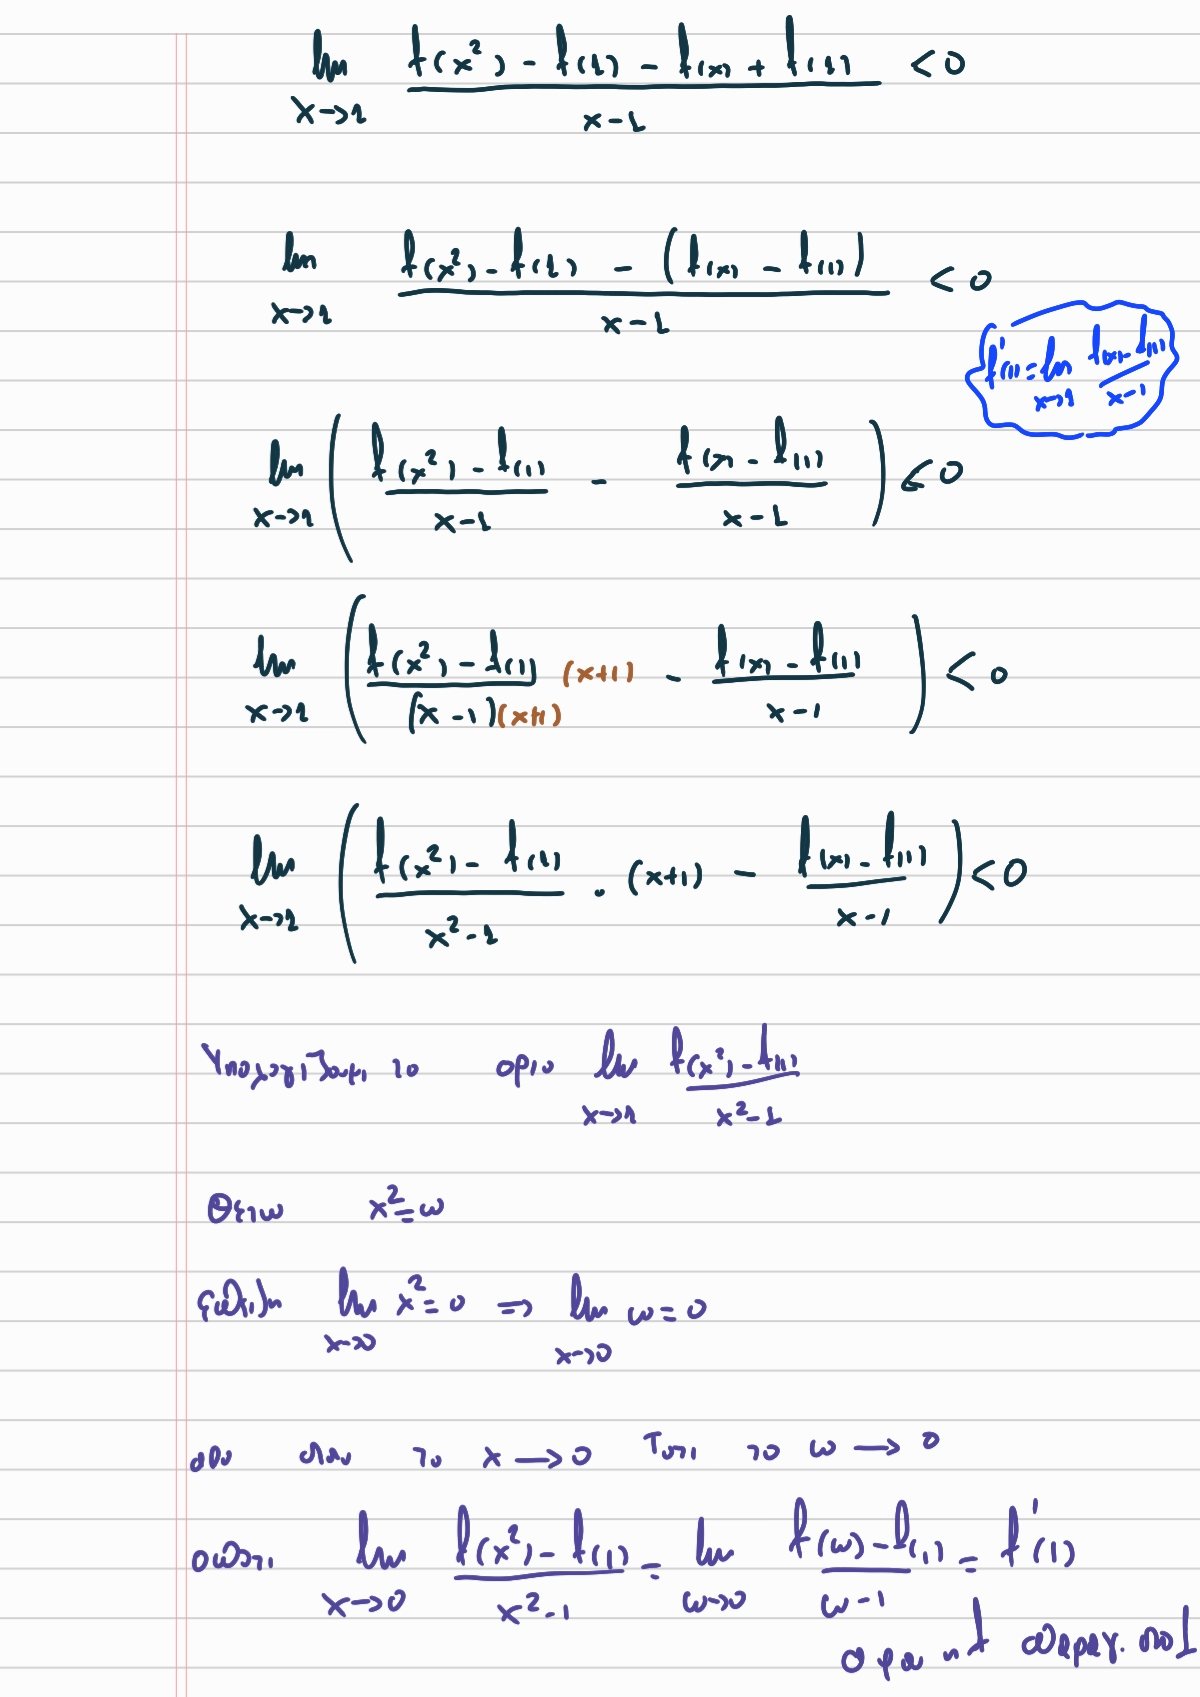 lim x→1 (f(x²) - f(1) - f(x) + f(1)) / (x-1) < 0
lim x→1 (f(x²) - f(1) - (f(x) - f(1))) / (x-1) < 0
f'(1) = lim x→1 (f(x) - f(1)) / (x-1)
lim x→1 ( (f(x²) - f(1)) / (x-1) - (f(x) - f(1)) / (x-1) ) < 0
lim x→1 ( (f(x²) - f(1)) (x+1) / ((x-1)(x+1)) - (f(x) - f(1)) / (x-1) ) < 0
lim x→1 ( (f(x²) - f(1)) / (x²-1) · (x+1) - (f(x) - f(1)) / (x-1) ) < 0
Υπολογίζουμε το οριο lim x→1 (f(x²) - f(1)) / (x²-1)
Θετω x² = ω
επειδη lim x→0 x² = 0 ⇒ lim x→0 ω = 0
αρα οταν το x → 0 Τοτε το ω → 0
οποτε lim x→0 (f(x²) - f(1)) / (x²-1) = lim ω→0 (f(ω) - f(1)) / (ω-1) = f'(1)
αφου η f παραγ. στο 1